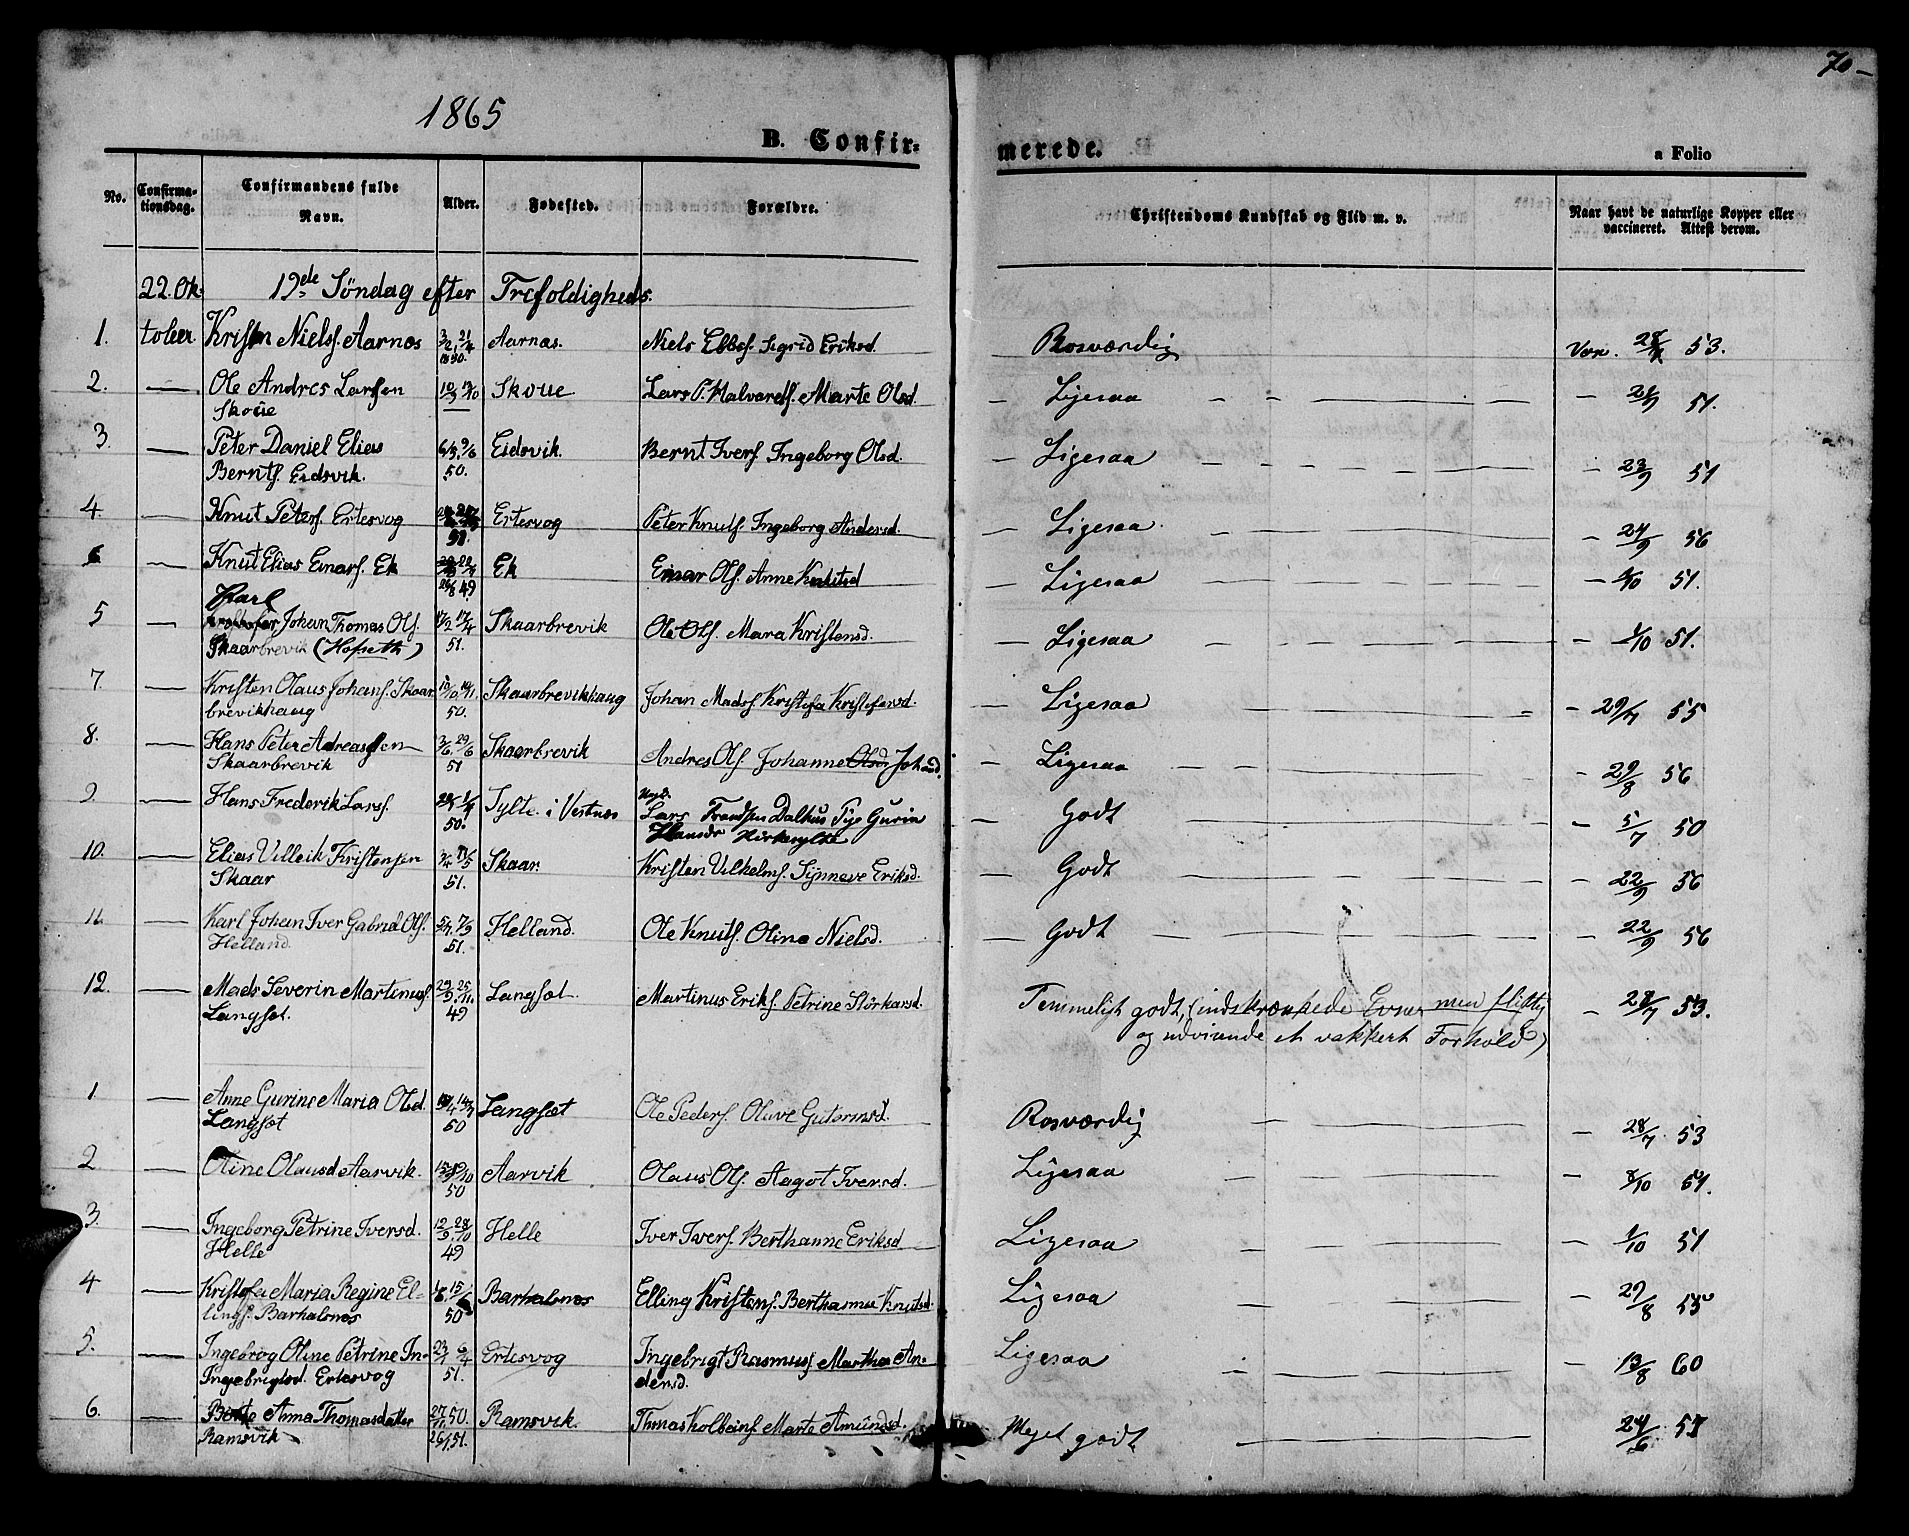 70-
1865
B. Confirmerede.
a Folio
No. Confirmationsdag. Confirmandens fulde Navn. Alder. Fødested. Forældre. Christendoms Kundskab og Flid m. v. Naar havt de naturlige Kopper eller vaccineret. Attest derom.
22. Ok. 19de Söndag efter Trefoldigheds.
1. tober Kristen Nielsf. Aarnæs 3/2 21/4 1850. Aarnæs. Niels Ebbef. Sigrid Eriksd. Rosværdig Vac. 53.
2. — Ole Andres Larssen Skoue 10/9 19/10 Skoue Lars P. Halvardf. Marte Olsd. — Ligesaa — 51.
3. — Peter Daniel Elias Berntf. Eidsvik. 6/5 9/6 50. Eidsvik. Bernt Iverf. Ingeborg Olsd. — Ligesaa — 23/9 51
4. — Knut Petersf. Ertesvog 51 Ertesvog Peter Knutf. Ingeborg Andersd. — Ligesaa — 24/9 56
6 — Knut Elias Einarf. Ek 49 Ek Einar Olf. Anne Knutsd — Ligesaa — /10 51.
5 — Karl Johan Thomas Olf. Skaarbrevik (Hofseth) 17/2 17/4 51. Skaarbrevik Ole Olf. Mara Kristensd. — Ligesaa — 1/10 51.
7. — Kristen Olaus Johanf. Skaarbrevikhaug 10/10 19/11. 50. Skaarbrevikhaug Johan Madsf. Kristofa Kristofersd. — Ligesaa — 29/7 55
8. — Hans Peter Andreassen Skaarbrevik 3/6. 29/6 51 Skaarbrevik Andres Olf. Johanne Olsd Johand. — Ligesaa — 29/8 56
9. — Hans Frederik Larsf. 50. Sylte i Vestnæs Lars Frandsen Dalhus Pige Gurin Hansdr Kirkesylte — Godt — 5/7 50
10. — Elias Villeik Kristensen Skaar 3/4 11/5 51. Skaar. Kristen Vilhelmf. Synneve Eriksd. — Godt — 22/9 56
11. — Karl Johan Iver Gabriel Olf. Helland. 5/7. 7/9 51. Helland. Ole Knutf. Oline Nielsd. — Godt — 22/9 56
12. — Mads Severin Martinusf. Langset. 29/9. 25/11. 49 Langset. Martinus Erikf. Petrine Störkersd. Temmeligt godt, (indskrænkede Evner men flittig og udvisende et vakkert Forhold) — 28/7 53.
1 — Anne Gurine Maria Olsd. Langset 50 Langset Ole Pedersf. Olave Gutormsd. Rosværdig — 28/7 53
2. — Oline Olausd Aarvik. 50 Aarvik Olaus Olf. Aagot Iversd. Ligesaa — 8/10 51.
3. — Ingeborg Petrine Iversd. Helle 12/9. 28/10 49 Helle Iver Iverf. Berthanne Eriksd Ligesaa — 1/10 51
4 — Kristofa Maria Regine Ellingf. Barhalsnes 50 Barhalsnes Elling Kristenf. Berthanne Knutsd. Ligesaa — 29/8 55
5. — Ingebrog Oline Petrine In- Ingebrigtsd. Ertesvog 23/1 6/4 51. Ertesvog Ingebrigt Rasmusf. Marthe Andersd. Ligesaa — 13/8 60
6. — Berte Anna Thomasdatter Ramsvik 27/11. 50. 26/1 51. Ramsvik. Thmas Kolbeinf. Marte Amundsd. Meget godt 24/6